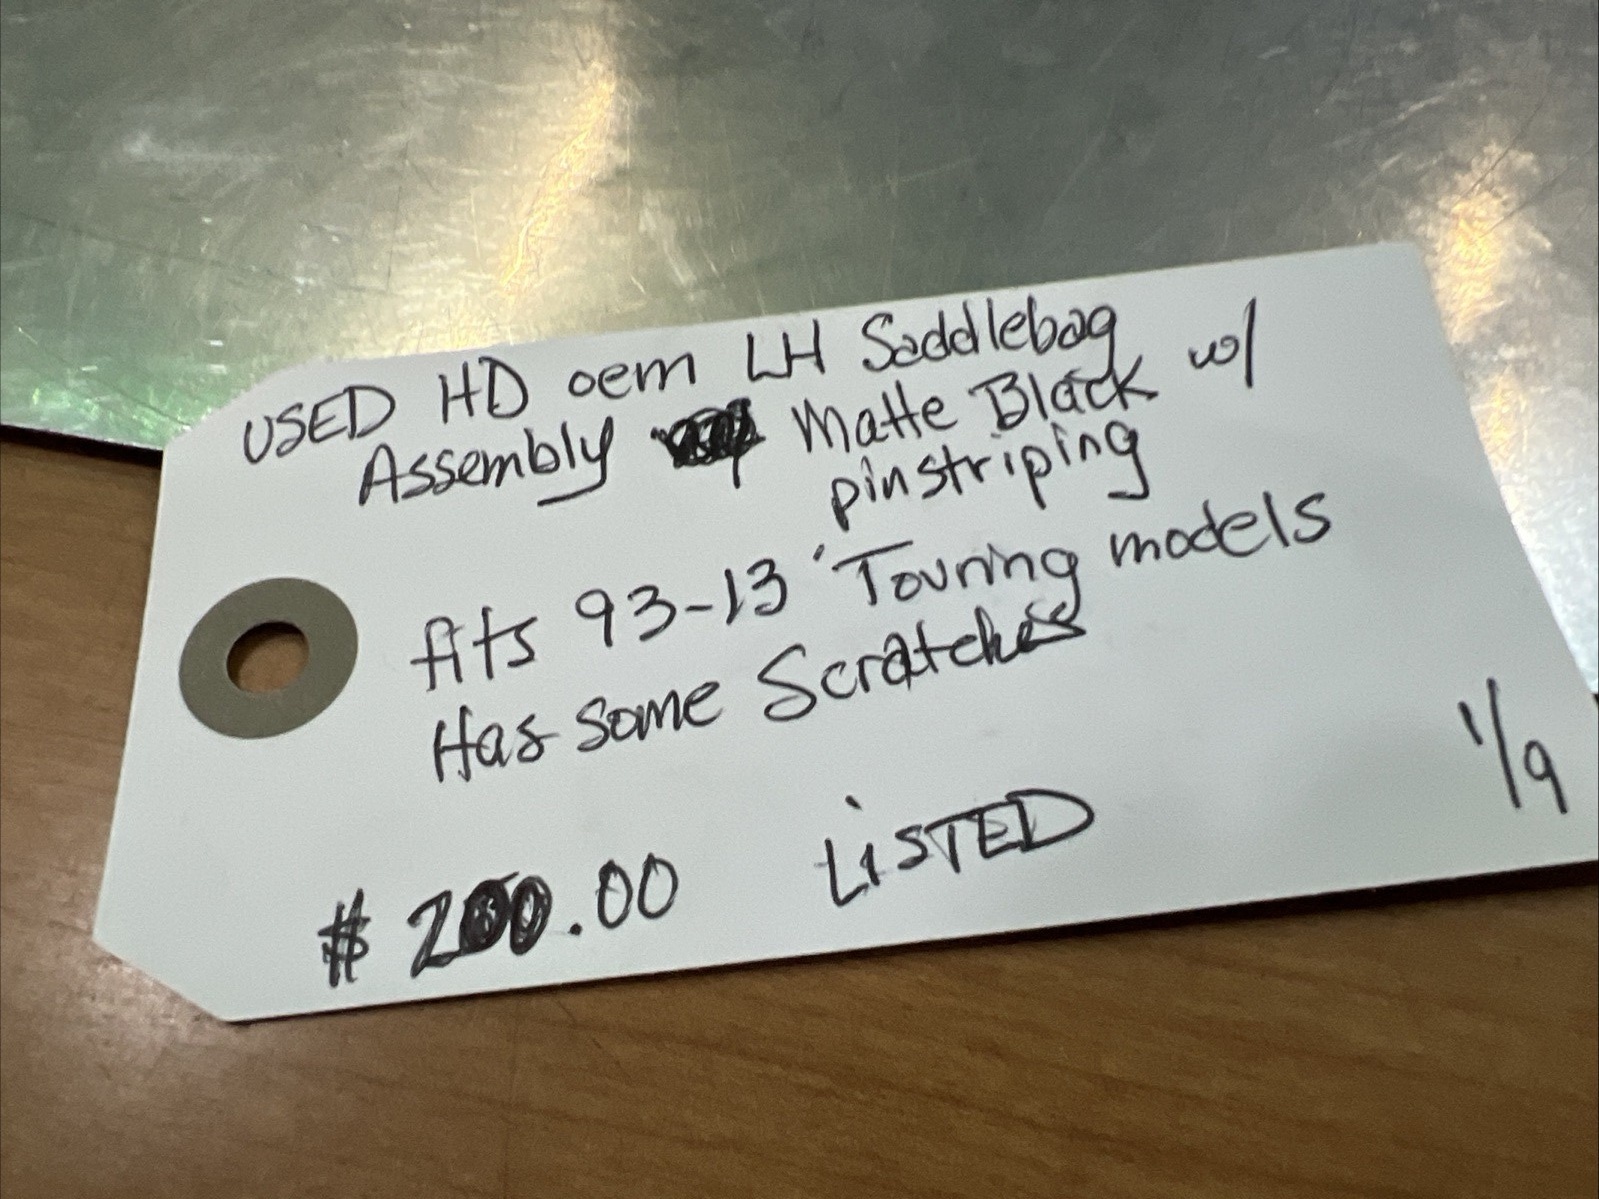 USED HD oem LH Saddlebag
Assembly Matte Black w/
pinstriping
fits 93-13 Touring models
Has some Scratches
$ 200.00 LiSTED 1/9